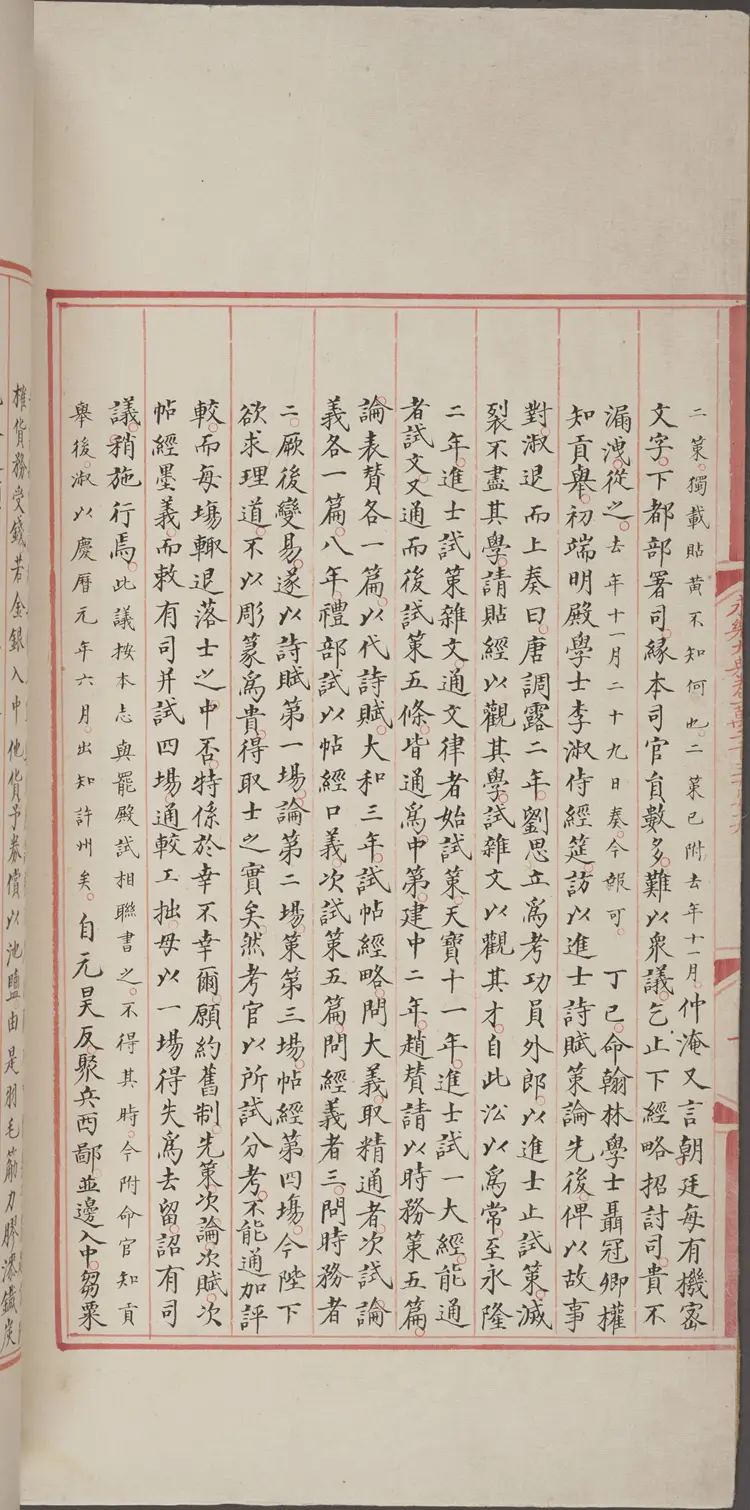 二策。獨載貼黃不知何也。二策已附去年十一月。仲淹又言朝廷每有機密
文字。下都部署司。緣本司官員數多。難以衆議。乞止下經略招討司。貴不
漏洩。從之。去年十一月二十九日奏。今報可。丁巳。命翰林學士聶冠卿權
知貢舉。初端明殿學士李淑侍經筵。訪以進士詩賦策論先後。俾以故事
對。淑退而上奏曰。唐調露二年。劉思立爲考功員外郎。以進士止試策。滅
裂不盡其學。請貼經以觀其學。試雜文以觀其才。自此㳂以爲常。至永隆
二年。進士試策雜文通文律者始試策。天寶十一年。進士試一大經。能通
者試文。又通而後試策五條。皆通爲中第。建中二年。趙贊請以時務策五篇。
論表贊各一篇。以代詩賦。大和三年。試帖經略問大義。取精通者。次試論
義各一篇。八年。禮部試以帖經口義。次試策五篇。問經義者三。問時務者
二。厥後變易。遂以詩賦第一場。論第二場。策第三場。帖經第四場。今陛下
欲求理道。不以彫篆爲貴。得取士之實矣。然考官以所試分考。不能通加評
較。而每場輒退落士之中否。特係於幸不幸爾。願約舊制。先策。次論。次賦。次
帖經墨義。而敕有司并試四場。通較工拙。毋以一場得失爲去留。詔有司
議。稍施行焉。此議按本志與罷殿試相聯書之。不得其時。今附命官知貢
舉後。淑以慶曆元年六月。出知許州矣。自元昊反聚兵西鄙。並邊入中。芻粟
榷貨務受錢若金銀入中他貨予券償以池鹽由是羽毛筋力膠漆鐵炭